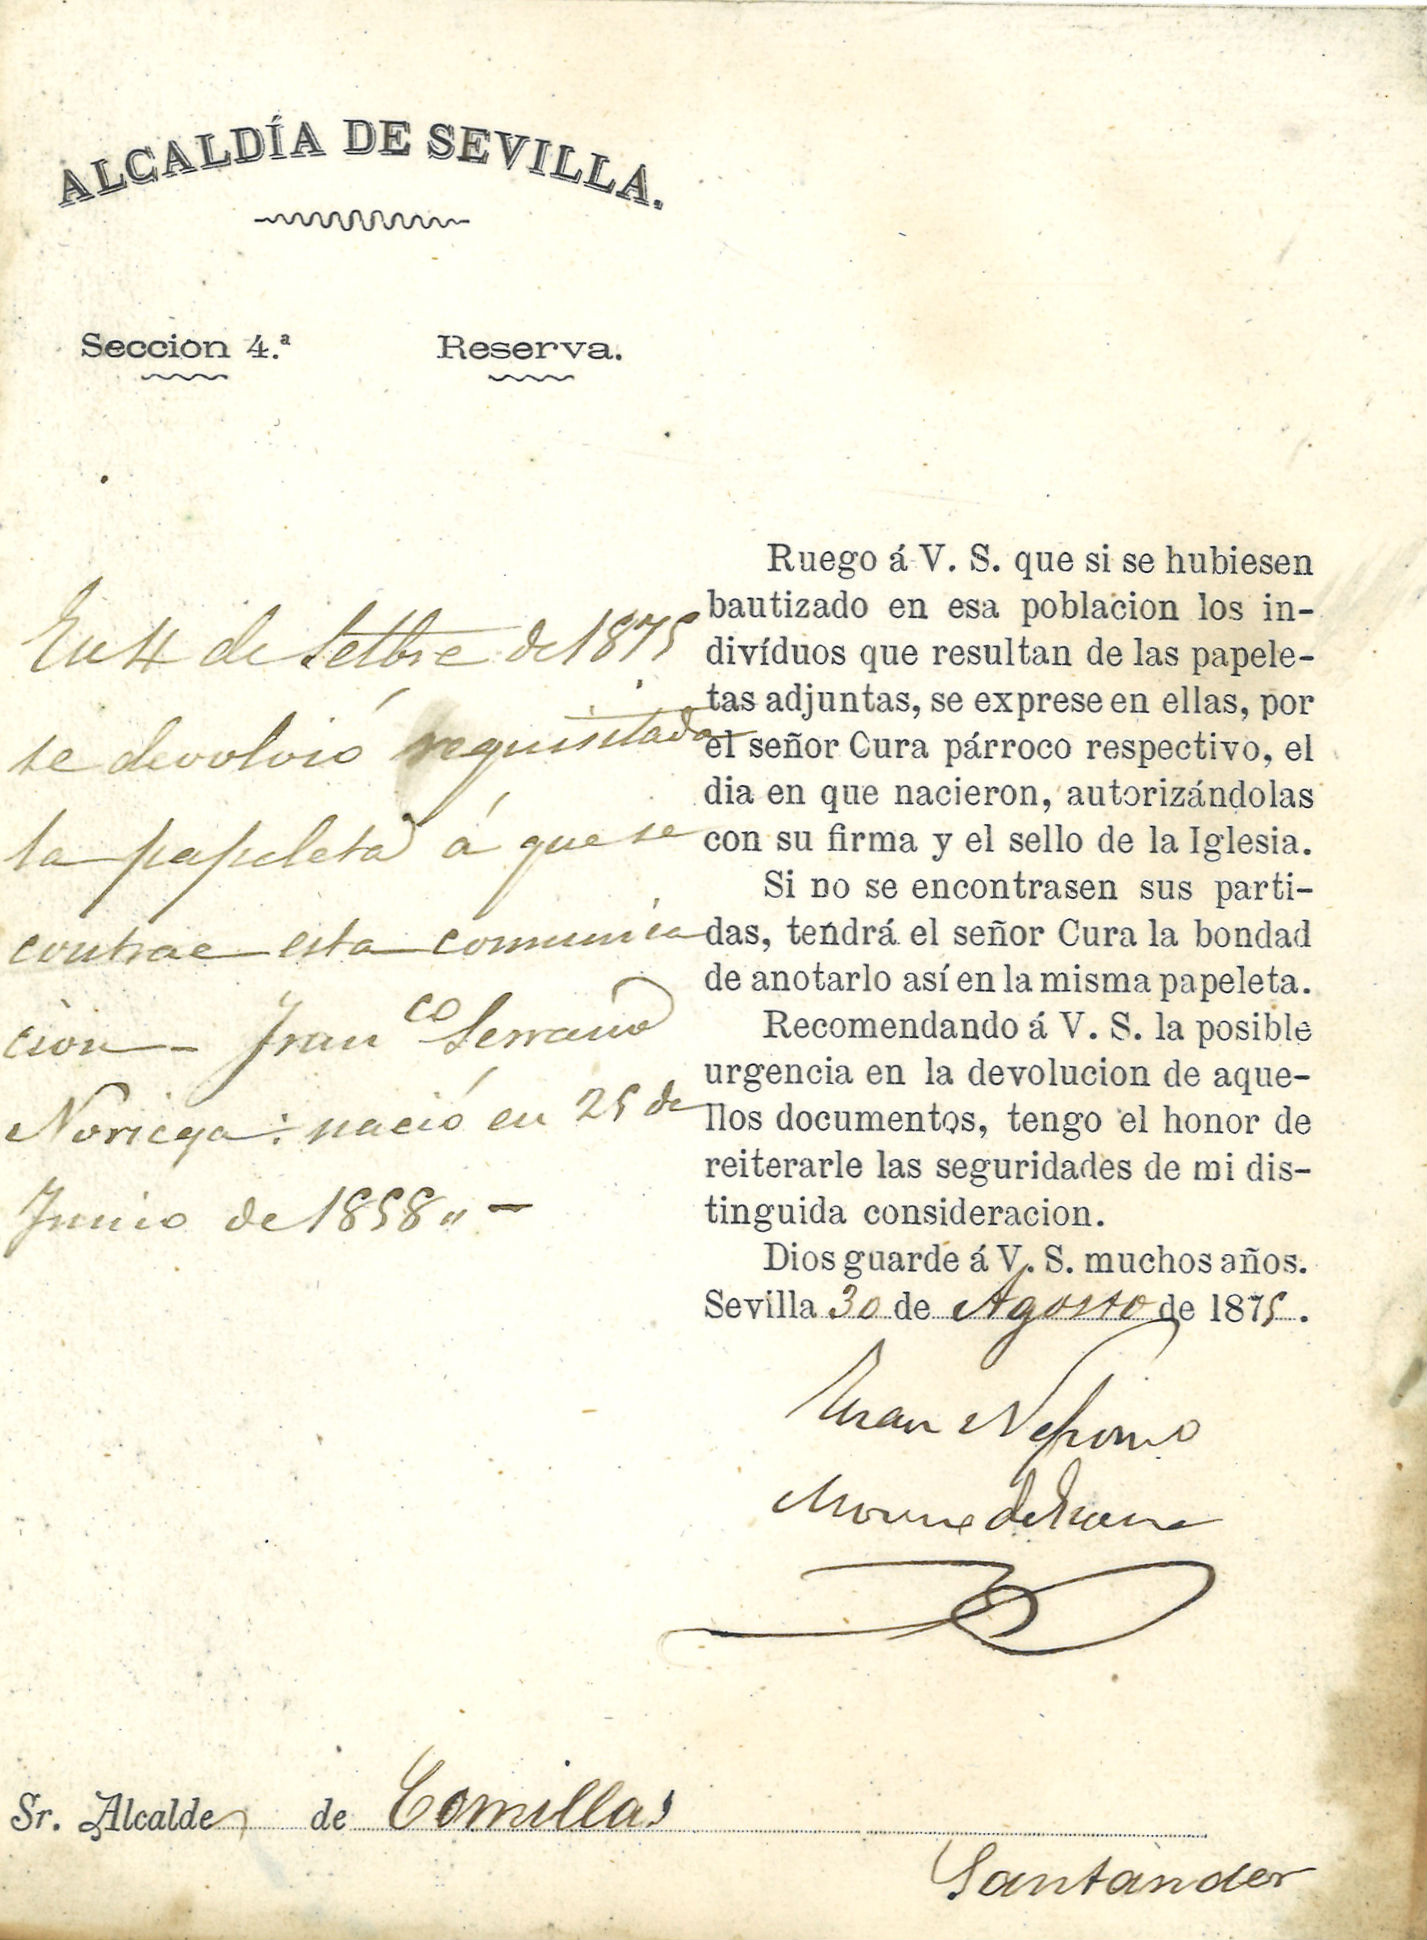 ALCALDÍA DE SEVILLA.
Seccion 4.ª Reserva.
En 4 de Setbre de 1875
se devolvió requisitada
la papeleta á que se
contrae esta comunica
cion - Fran co Serrano
Noriega: nació en 25 de
Junio de 1858 „ -
Ruego á V. S. que si se hubiesen
bautizado en esa poblacion los in-
divíduos que resultan de las papele-
tas adjuntas, se exprese en ellas, por
el señor Cura párroco respectivo, el
dia en que nacieron, autorizándolas
con su firma y el sello de la Iglesia.
Si no se encontrasen sus parti-
das, tendrá el señor Cura la bondad
de anotarlo así en la misma papeleta.
Recomendando á V. S. la posible
urgencia en la devolucion de aque-
llos documentos, tengo el honor de
reiterarle las seguridades de mi dis-
tinguida consideracion.
Dios guarde á V. S. muchos años.
Sevilla 30 de Agosto de 1875.
Juan Nepomo
Sr. Alcalde de Comillas
Santander